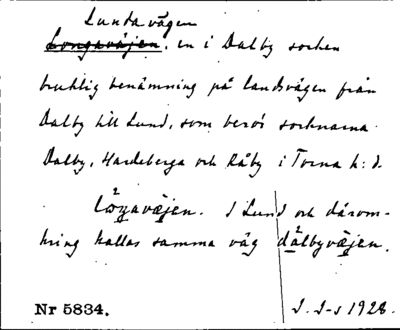 Lundavägen
Longaväjen. en i Dalby socken
bruklig benämning på landsvägen från
Dalby till Lund, som berör socknarna
Dalby, Hardeberga och Råby i Torna h:d.
lo̊ŋavæjen. I Lund och därom-
kring kallas samma väg dålbyvæjen.
Nr 5834.
I. I-s 1928.